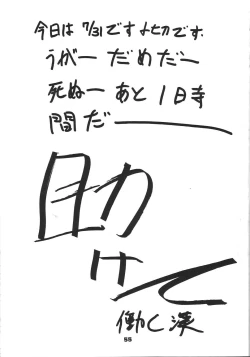 今日は 7/31です よ七刀です.
うがー だめだー
死ぬー あと1日寺
間だー
助
けて
働く漢
55